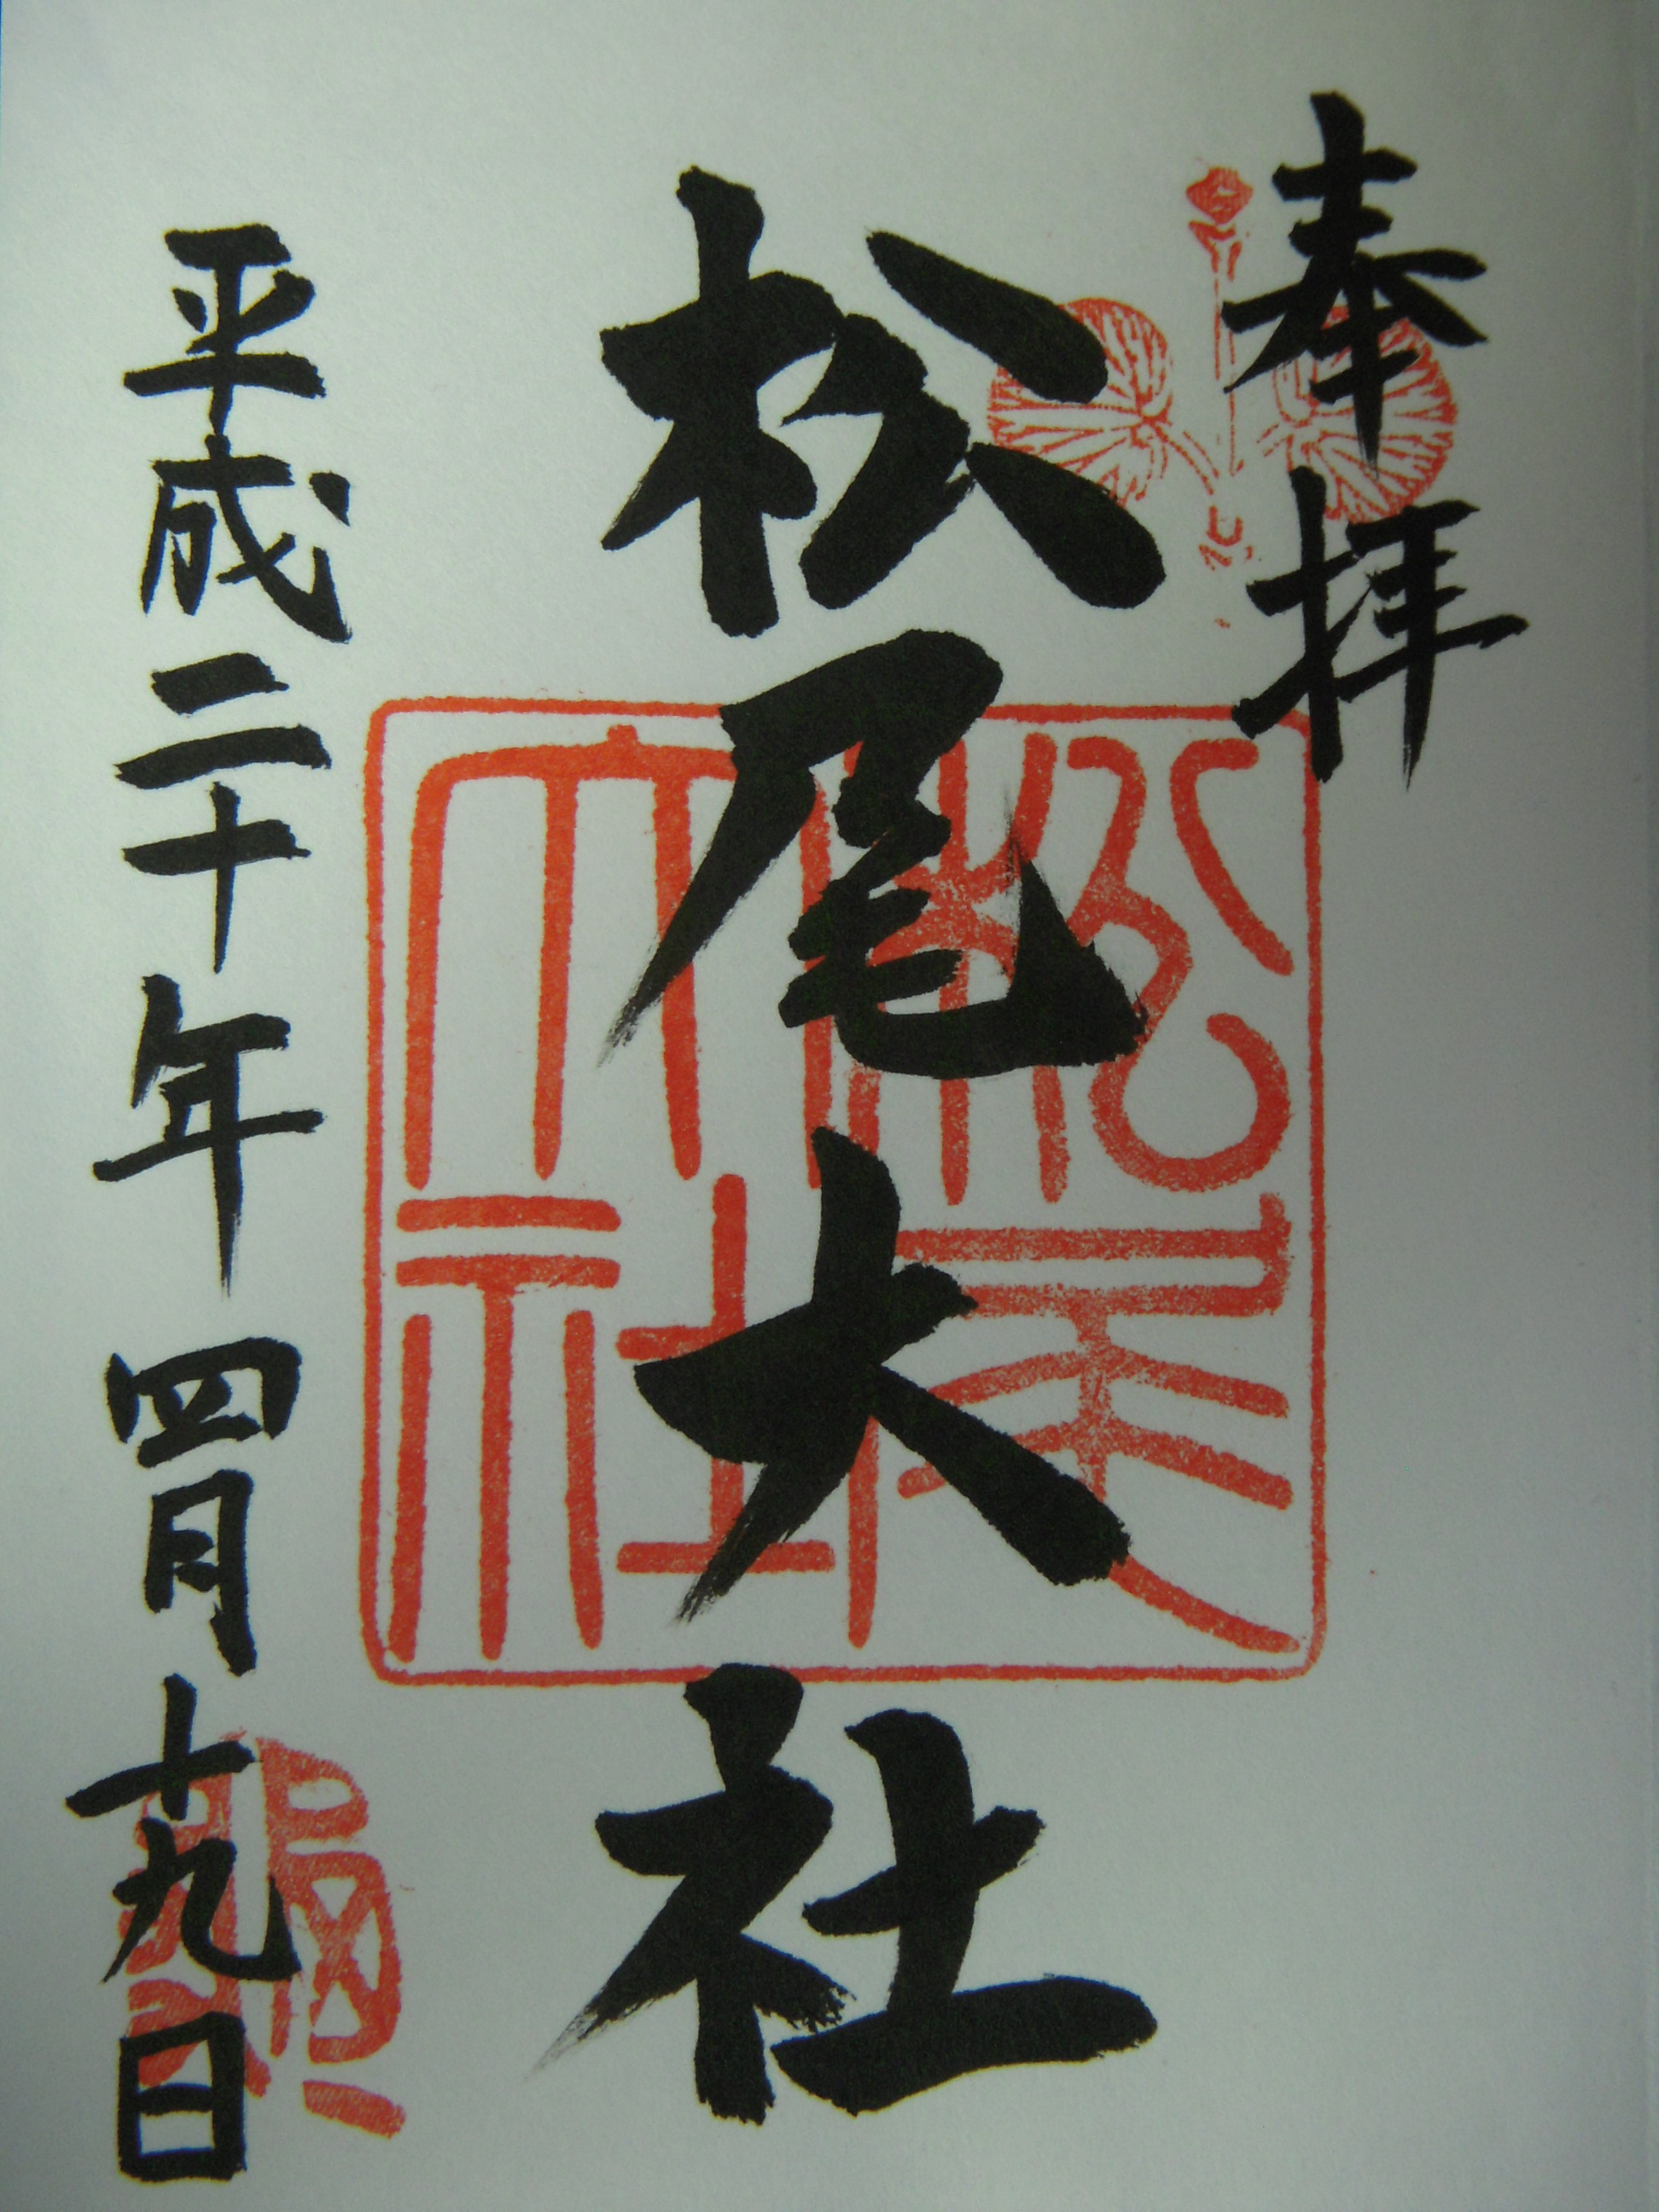 奉拝
松尾大社
松尾大社
平成二十年四月十九日